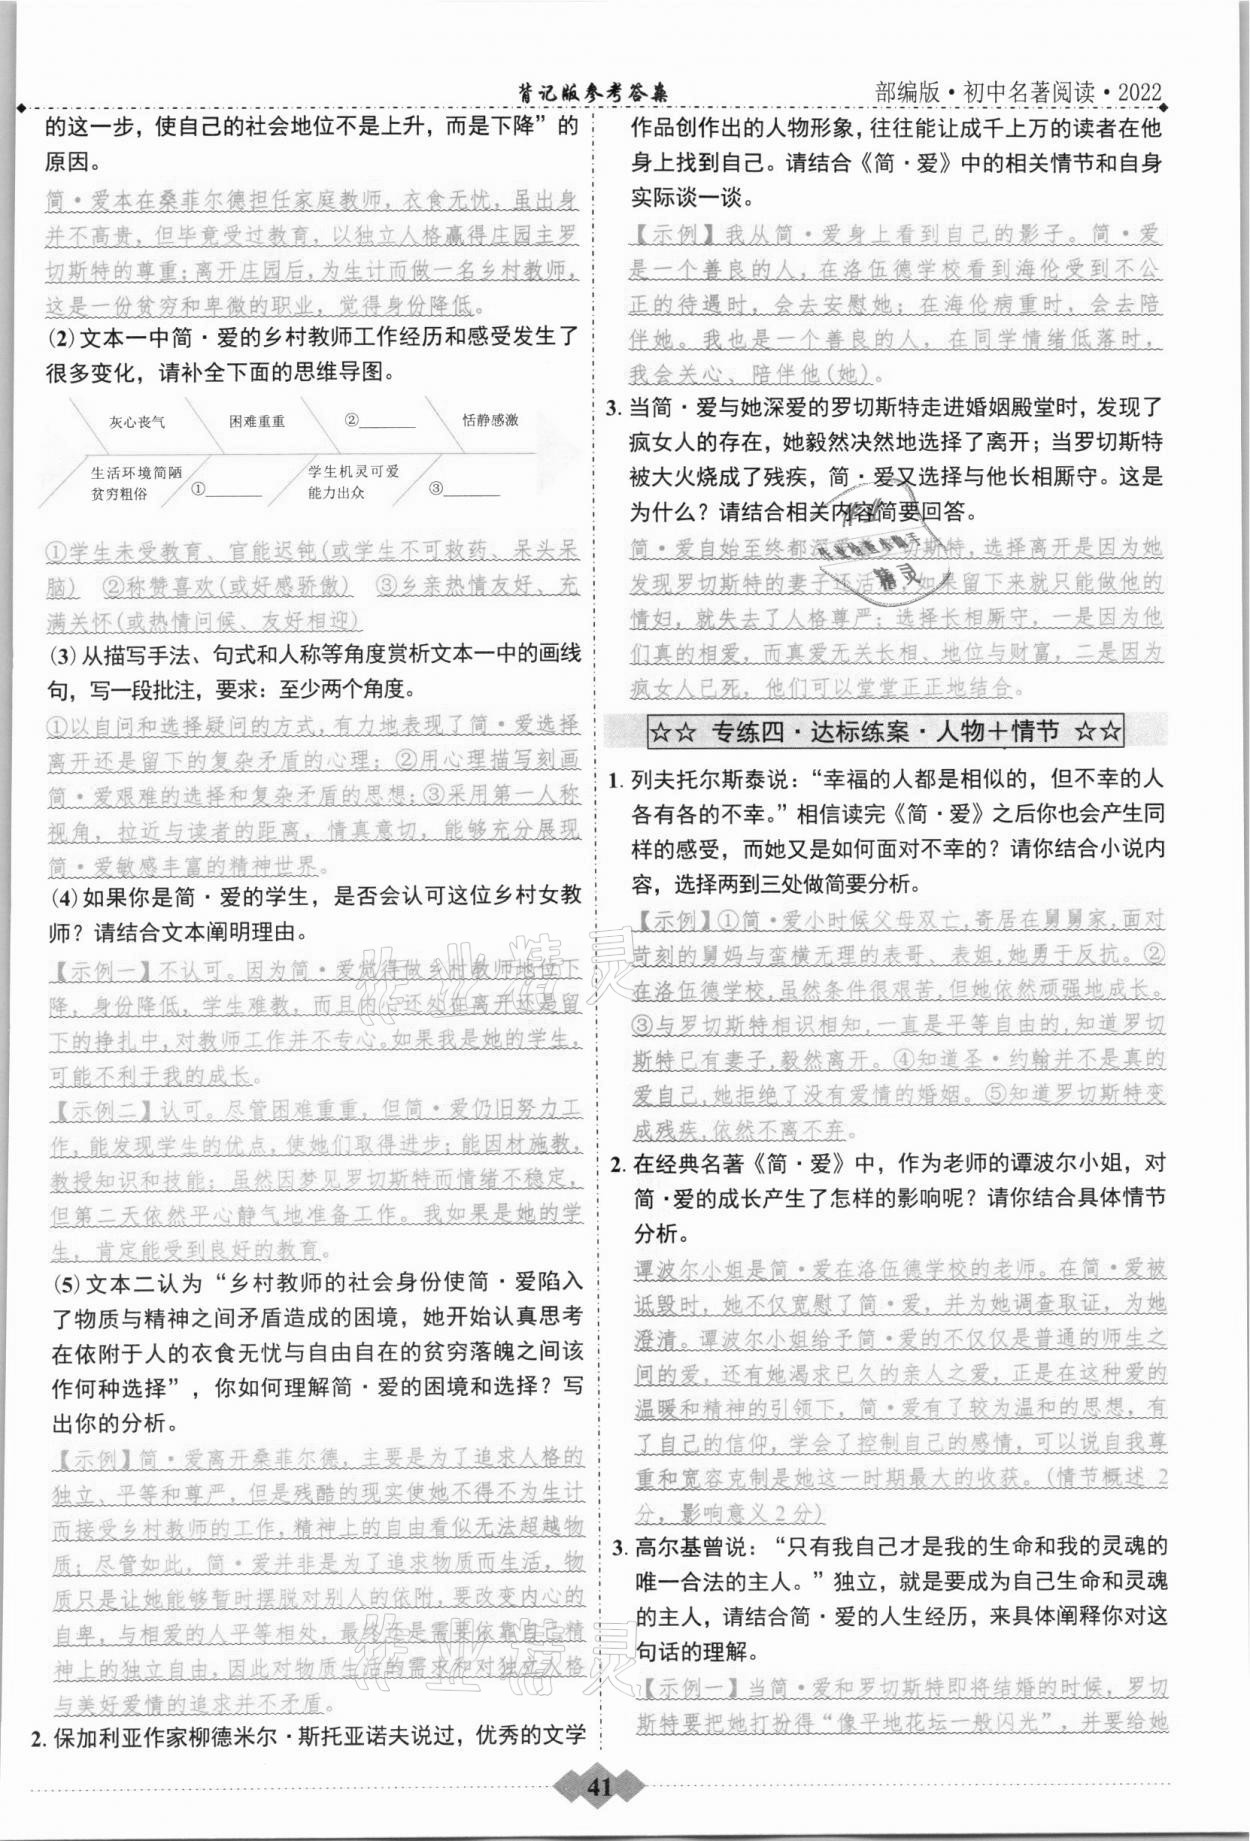 背记版参考答案
部编版·初中名著阅读·2022
的这一步，使自己的社会地位不是上升，而是下降”的
原因。
简·爱本在桑菲尔德担任家庭教师，衣食无忧，虽出身
并不高贵，但毕竟受过教育，以独立人格赢得庄园主罗
切斯特的尊重；离开庄园后，为生计而做一名乡村教师，
这是一份贫穷和卑微的职业，觉得身份降低。
(2)文本一中简·爱的乡村教师工作经历和感受发生了
很多变化，请补全下面的思维导图。
灰心丧气 困难重重 ②______ 恬静感激
生活环境简陋
贫穷粗俗
①______
学生机灵可爱
能力出众
③______
①学生未受教育、官能迟钝(或学生不可救药、呆头呆
脑) ②称赞喜欢(或好感骄傲) ③乡亲热情友好、充
满关怀(或热情问候、友好相迎)
(3)从描写手法、句式和人称等角度赏析文本一中的画线
句，写一段批注，要求：至少两个角度。
①以自问和选择疑问的方式，有力地表现了简·爱选择
离开还是留下的复杂矛盾的心理；②用心理描写刻画
简·爱艰难的选择和复杂矛盾的思想；③采用第一人称
视角，拉近与读者的距离，情真意切，能够充分展现
简·爱敏感丰富的精神世界。
(4)如果你是简·爱的学生，是否会认可这位乡村女教
师？请结合文本阐明理由。
【示例一】不认可。因为简·爱觉得做乡村教师地位下
降，身份降低，学生难教，而且内心还处在离开还是留
下的挣扎中，对教师工作并不专心。如果我是她的学生，
可能不利于我的成长。
【示例二】认可。尽管困难重重，但简·爱仍旧努力工
作，能发现学生的优点，使她们取得进步；能因材施教，
教授知识和技能；虽然因梦见罗切斯特而情绪不稳定，
但第二天依然平心静气地准备工作。我如果是她的学
生，肯定能受到良好的教育。
(5)文本二认为“乡村教师的社会身份使简·爱陷入
了物质与精神之间矛盾造成的困境，她开始认真思考
在依附于人的衣食无忧与自由自在的贫穷落魄之间该
作何种选择”，你如何理解简·爱的困境和选择？写
出你的分析。
【示例】简·爱离开桑菲尔德，主要是为了追求人格的
独立、平等和尊严，但是残酷的现实使她不得不为生计
而接受乡村教师的工作，精神上的自由看似无法超越物
质；尽管如此，简·爱并非是为了追求物质而生活，物
质只是让她能够暂时摆脱对别人的依附，要改变内心的
自卑，与相爱的人平等相处，最终还是需要依靠自己精
神上的独立自由，因此对物质生活的需求和对独立人格
与美好爱情的追求并不矛盾。
2. 保加利亚作家柳德米尔·斯托亚诺夫说过，优秀的文学
作品创作出的人物形象，往往能让成千上万的读者在他
身上找到自己。请结合《简·爱》中的相关情节和自身
实际谈一谈。
【示例】我从简·爱身上看到自己的影子。简·爱
是一个善良的人，在洛伍德学校看到海伦受到不公
正的待遇时，会去安慰她；在海伦病重时，会去陪
伴她。我也是一个善良的人，在同学情绪低落时，
我会关心、陪伴他(她)。
3. 当简·爱与她深爱的罗切斯特走进婚姻殿堂时，发现了
疯女人的存在，她毅然决然地选择了离开；当罗切斯特
被大火烧成了残疾，简·爱又选择与他长相厮守。这是
为什么？请结合相关内容简要回答。
简·爱自始至终都深爱着罗切斯特，选择离开是因为她
发现罗切斯特的妻子还活着，如果留下来就只能做他的
情妇，就失去了人格尊严；选择长相厮守，一是因为他
们真的相爱，而真爱无关长相、地位与财富，二是因为
疯女人已死，他们可以堂堂正正地结合。
☆☆ 专练四·达标练案·人物＋情节 ☆☆
1. 列夫托尔斯泰说：“幸福的人都是相似的，但不幸的人
各有各的不幸。”相信读完《简·爱》之后你也会产生同
样的感受，而她又是如何面对不幸的？请你结合小说内
容，选择两到三处做简要分析。
【示例】①简·爱小时候父母双亡，寄居在舅舅家，面对
苛刻的舅妈与蛮横无理的表哥、表姐，她勇于反抗。②
在洛伍德学校，虽然条件很艰苦，但她依然顽强地成长。
③与罗切斯特相识相知，一直是平等自由的，知道罗切
斯特已有妻子，毅然离开。④知道圣·约翰并不是真的
爱自己，她拒绝了没有爱情的婚姻。⑤知道罗切斯特变
成残疾，依然不离不弃。
2. 在经典名著《简·爱》中，作为老师的谭波尔小姐，对
简·爱的成长产生了怎样的影响呢？请你结合具体情节
分析。
谭波尔小姐是简·爱在洛伍德学校的老师。在简·爱被
诋毁时，她不仅宽慰了简·爱，并为她调查取证，为她
澄清。谭波尔小姐给予简·爱的不仅仅是普通的师生之
间的爱，还有她渴求已久的亲人之爱，正是在这种爱的
温暖和精神的引领下，简·爱有了较为温和的思想，有
了自己的信仰，学会了控制自己的感情，可以说自我尊
重和宽容克制是她这一时期最大的收获。(情节概述 2
分，影响意义 2 分)
3. 高尔基曾说：“只有我自己才是我的生命和我的灵魂的
唯一合法的主人。”独立，就是要成为自己生命和灵魂
的主人，请结合简·爱的人生经历，来具体阐释你对这
句话的理解。
【示例一】当简·爱和罗切斯特即将结婚的时候，罗切
斯特要把她打扮得“像平地花坛一般闪光”，并要给她
41